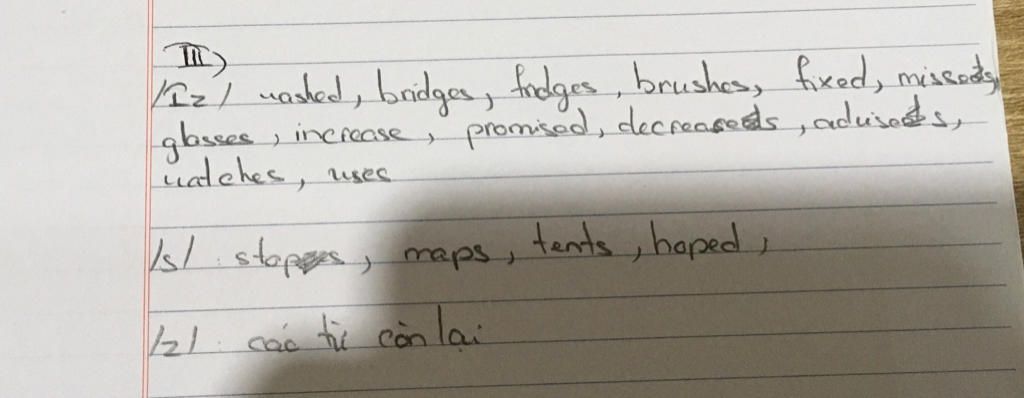 III)
/Iz/ washed, bridges, fridges, brushes, fixed, misseds,
glasses, increase, promised, decreases, advises,
watches, uses
/s/: stops, maps, tents, hoped,
/z/: các từ còn lại